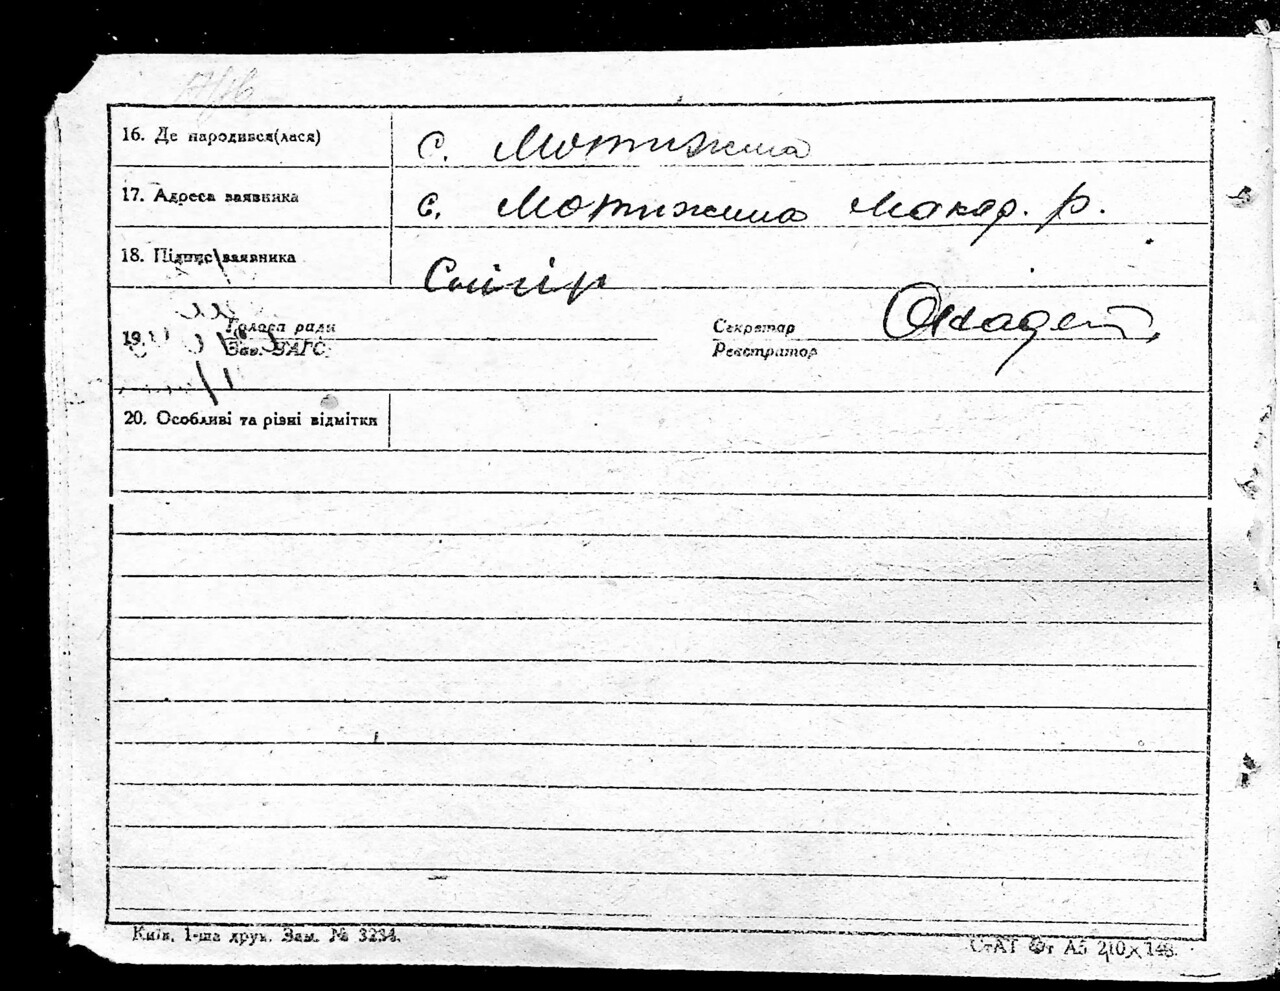 16. Де народився(лася) с. Мотижина
17. Адреса заявника с. Мотижина Макар. р.
18. Підпис заявника Снігір
19. Голова ради Секретар
Зав. ЗАГС: Реєстратор
20. Особливі та різні відмітки
Київ, 1-ша друк. Зам. № 3234.
СтАТ Фт А5 210×148.